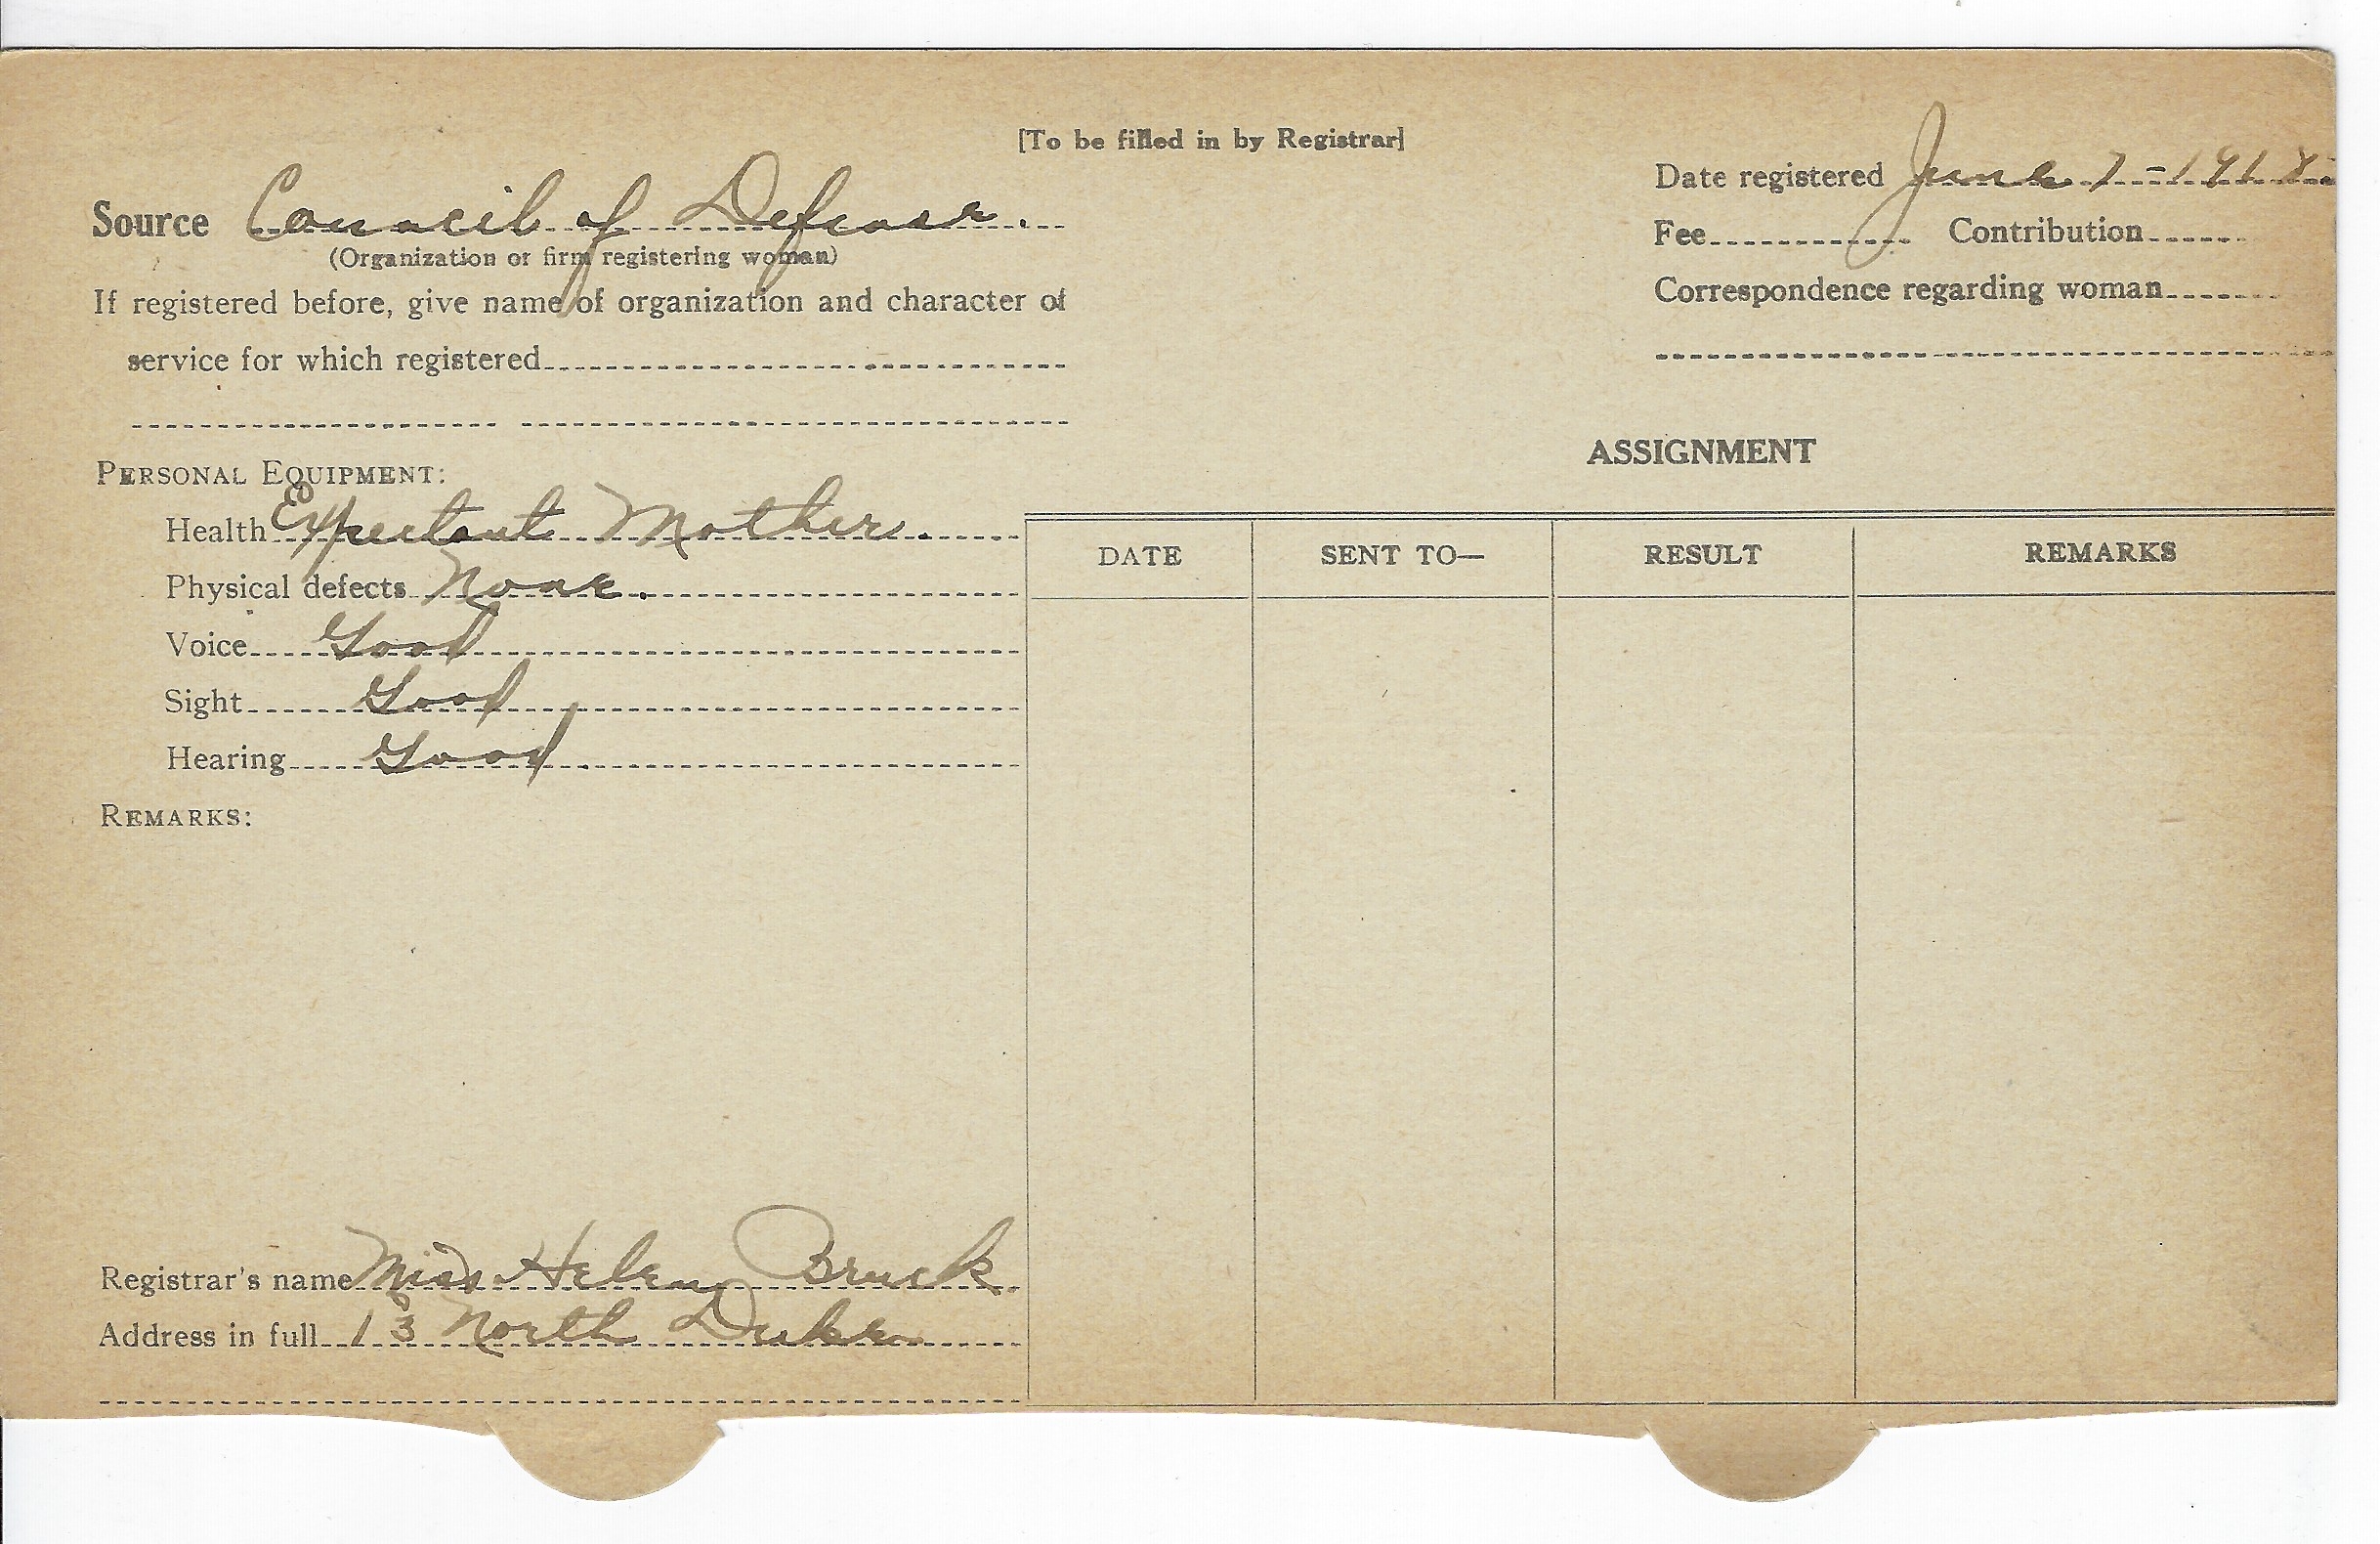 [To be filled in by Registrar]
Date registered June 7 - 1918.
Source Council of Defense.
(Organization or firm registering woman)
Fee Contribution
If registered before, give name of organization and character of
Correspondence regarding woman
service for which registered
ASSIGNMENT
PERSONAL EQUIPMENT:
Health Expectant Mother.
DATE SENT TO— RESULT REMARKS
Physical defects None.
Voice Good
Sight Good
Hearing Good
REMARKS:
Registrar's name Miss Helen Bruck.
Address in full 13 North Duke